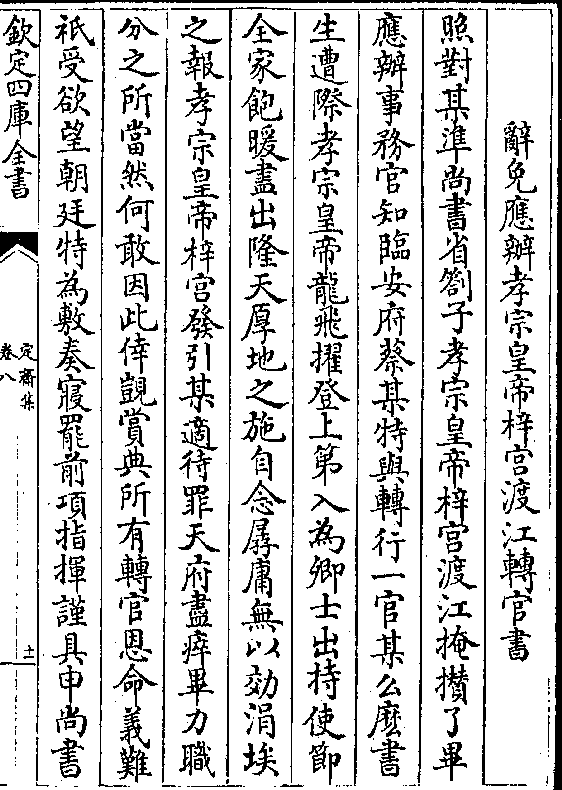 辭免應辦孝宗皇帝梓宮渡江轉官書
照對某準尚書省劄子孝宗皇帝梓宮渡江掩攢了畢
應辦事務官知臨安府蔡某特與轉行一官某么麽書
生遭際孝宗皇帝龍飛擢登上第入為卿士出持使節
全家飽暖盡出隆天厚地之施自念孱庸無以効涓埃
之報孝宗皇帝梓宮發引某適待罪天府盡瘁畢力職
分之所當然何敢因此倖覬賞典所有轉官恩命義難
祇受欲望朝廷特為敷奏寢罷前項指揮謹具申尚書
欽定四庫全書
定齋集
卷八
十一